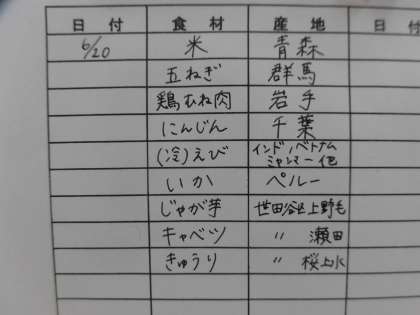 日付 食材 産地 日付
6/20 米 青森
玉ねぎ 群馬
鶏むね肉 岩手
にんじん 千葉
(冷)えび インド、ベトナム
ミャンマー他
いか ペルー
じゃが芋 世田谷区上野毛
キャベツ 〃 瀬田
きゅうり 〃 桜上水